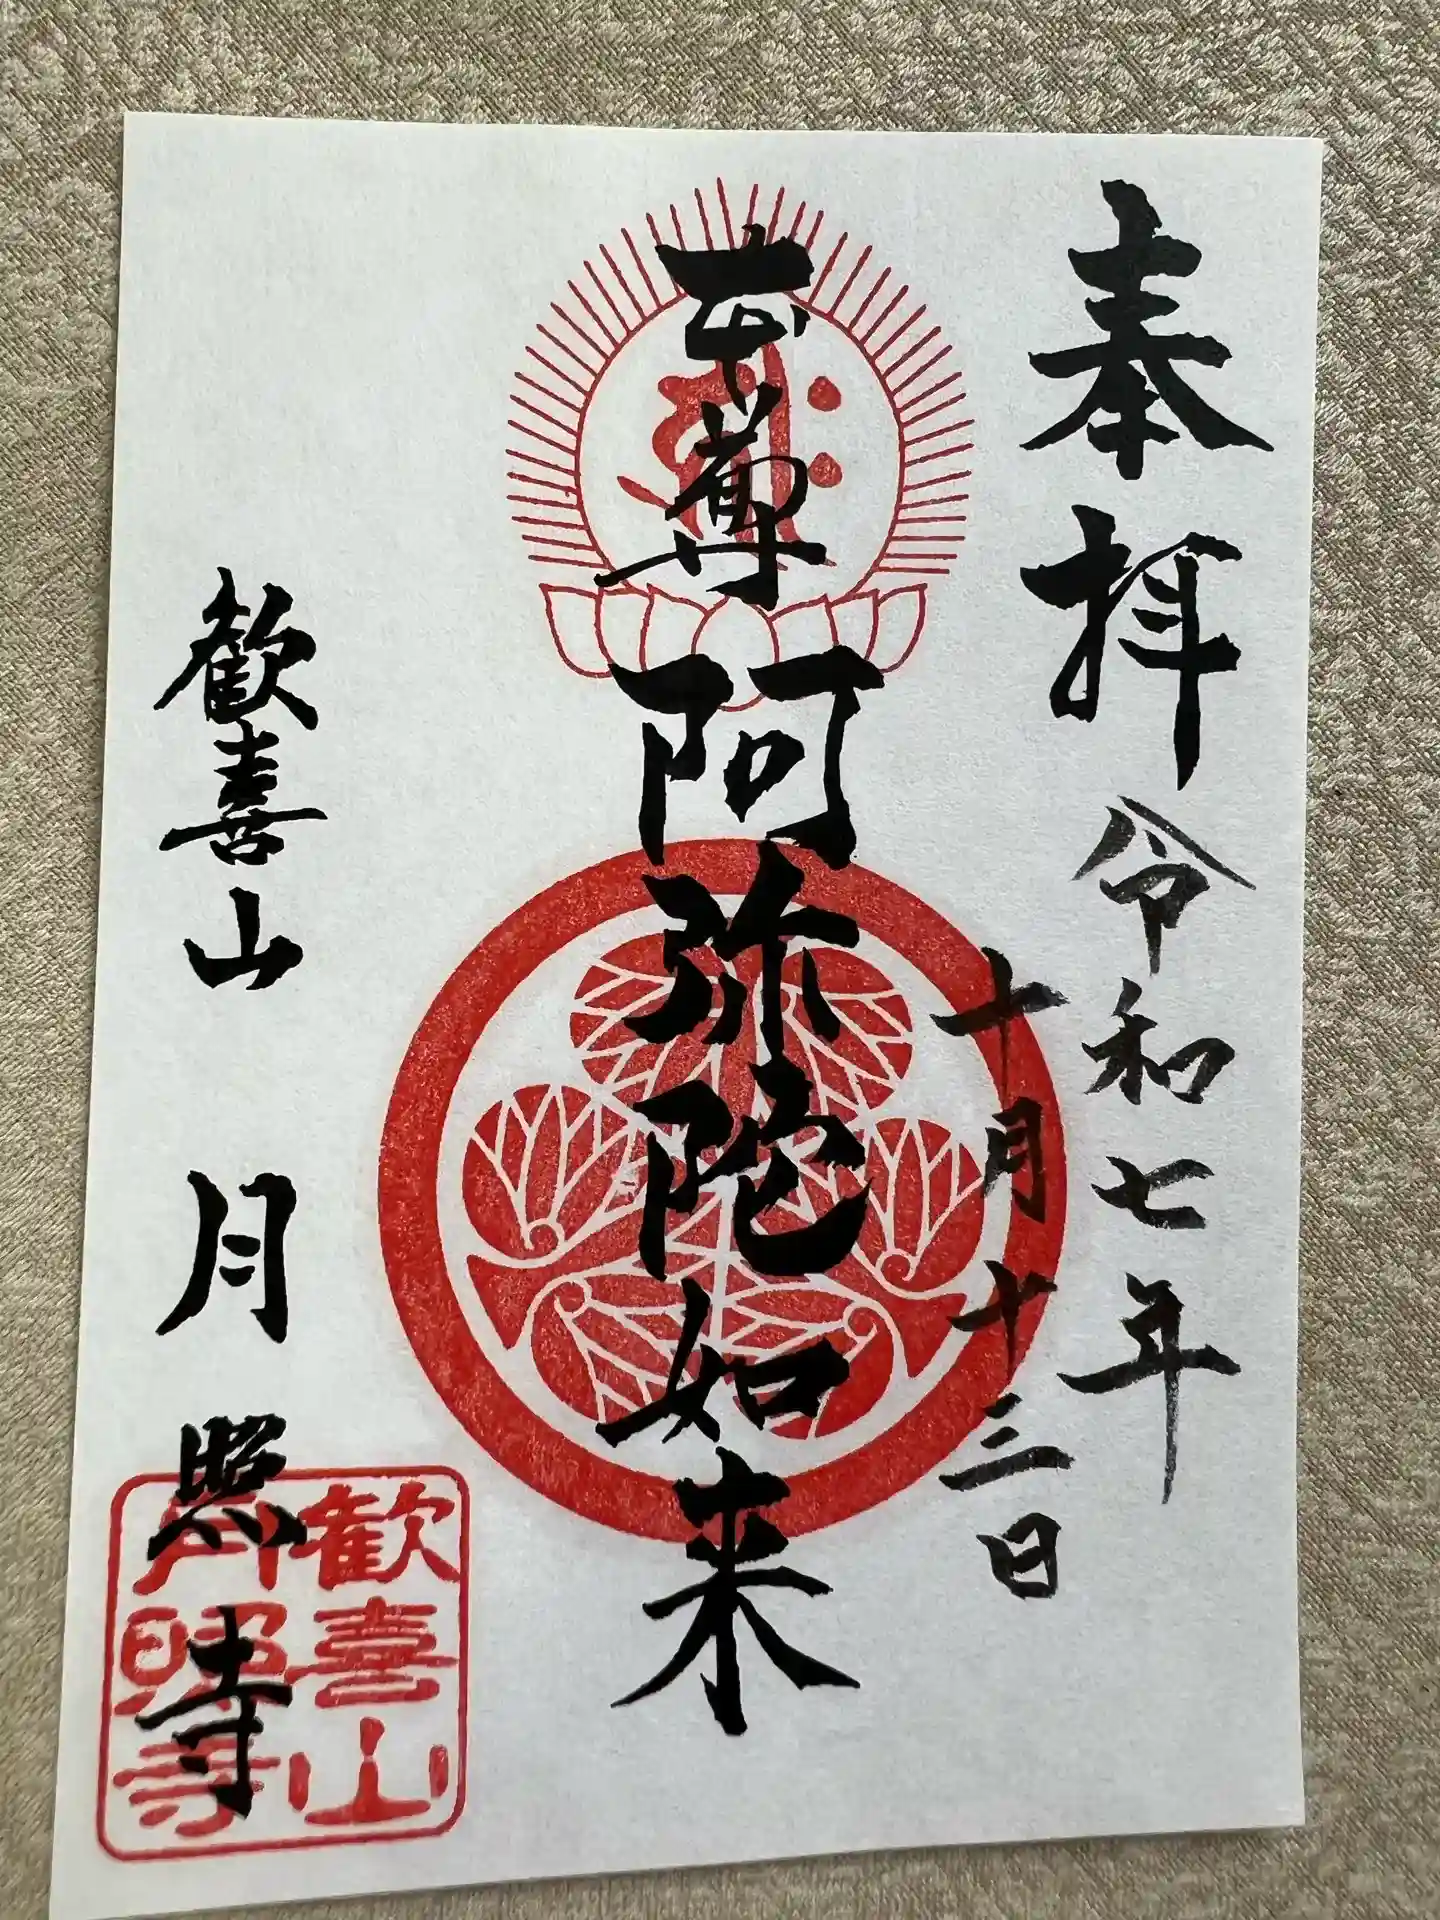 奉拝
令和七年
十月十三日
本尊
阿弥陀如来
歓喜山 月照寺
歓喜山
月照寺